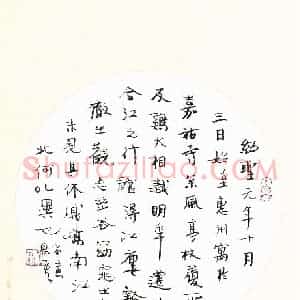 紹聖元年十月
三日始至惠州寓於
嘉祐寺松風亭杖履所
及鷄犬相識明年遷於
合江之行館得江樓豁
徹之觀忘幽谷窈窕之
未見其休戚嶠南江
北何以異也
Shufaziliao.com